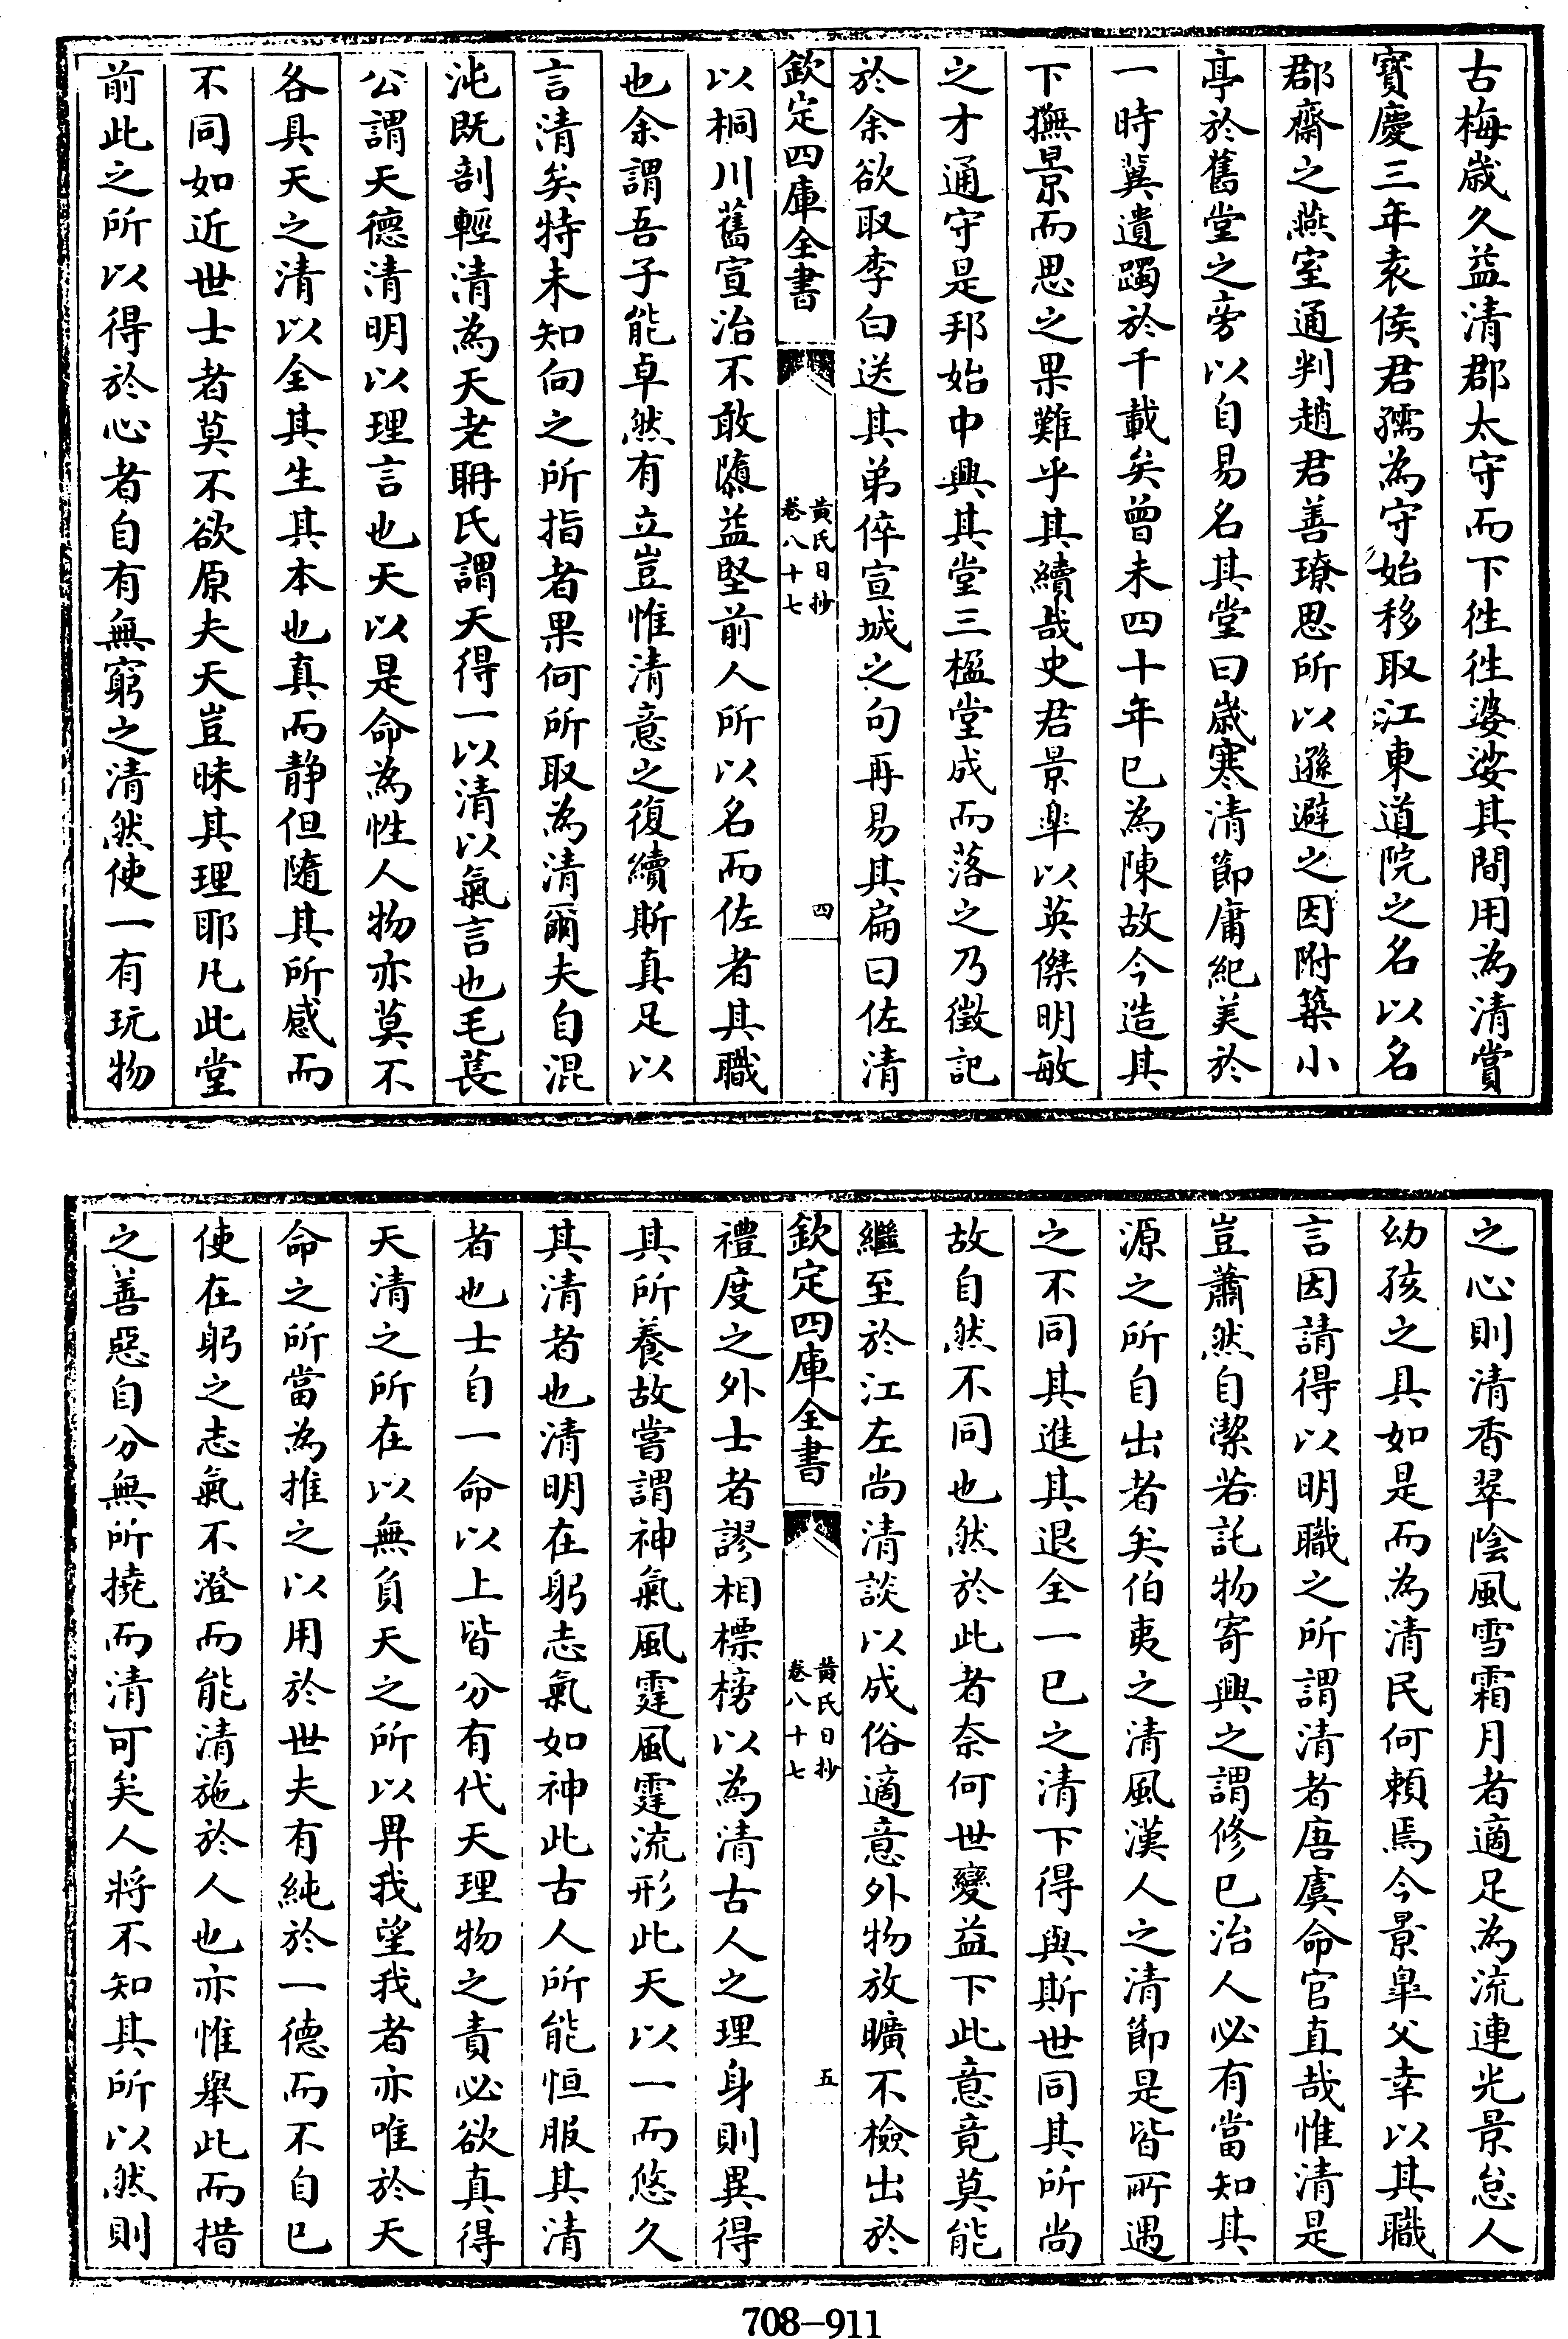 古梅歳久益清郡太守而下徃徃婆娑其間用為清賞
寳慶三年袁侯君孺為守始移取江東道院之名以名
郡齋之燕室通判趙君善璙思所以遜避之因附築小
亭於舊堂之旁以自易名其堂曰歲寒清節庸紀美於
一時冀遺躅於千載矣曾未四十年已為陳故今造其
下撫景而思之果難乎其續哉史君景臯以英傑明敏
之才通守是邦始中興其堂三楹堂成而落之乃徵記
於余欲取李白送其弟倅宣城之句再易其扁曰佐清
欽定四庫全書
黄氏日抄
卷八十七
四
以桐川舊宣治不敢隳益堅前人所以名而佐者其職
也余謂吾子能卓然有立豈惟清意之復續斯真足以
言清矣特未知向之所指者果何所取為清爾夫自混
沌既剖輕清為天老聃氏謂天得一以清以氣言也毛萇
公謂天德清明以理言也天以是命為性人物亦莫不
各具天之清以全其生其本也真而静但隨其所感而
不同如近世士者莫不欲原夫天豈昧其理耶凡此堂
前此之所以得於心者自有無窮之清然使一有玩物
之心則清香翠陰風雪霜月者適足為流連光景怠人
幼孩之具如是而為清民何頼焉今景臯父幸以其職
言因請得以明職之所謂清者唐虞命官直哉惟清是
豈蕭然自潔若託物寄興之謂修已治人必有當知其
源之所自出者矣伯夷之清風漢人之清節是皆所遇
之不同其進其退全一已之清下得與斯世同其所尚
故自然不同也然於此者奈何世變益下此意竟莫能
繼至於江左尚清談以成俗適意外物放曠不檢出於
欽定四庫全書
黄氏日抄
卷八十七
五
禮度之外士者謬相標榜以為清古人之理身則異得
其所養故嘗謂神氣風霆風霆流形此天以一而悠久
其清者也清明在躬志氣如神此古人所能恒服其清
者也士自一命以上皆分有代天理物之責必欲真得
天清之所在以無負天之所以畀我望我者亦唯於天
命之所當為推之以用於世夫有純於一德而不自已
使在躬之志氣不澄而能清施於人也亦惟舉此而措
之善惡自分無所撓而清可矣人將不知其所以然則
708—911